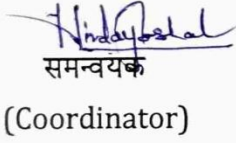 समन्वयक
(Coordinator)